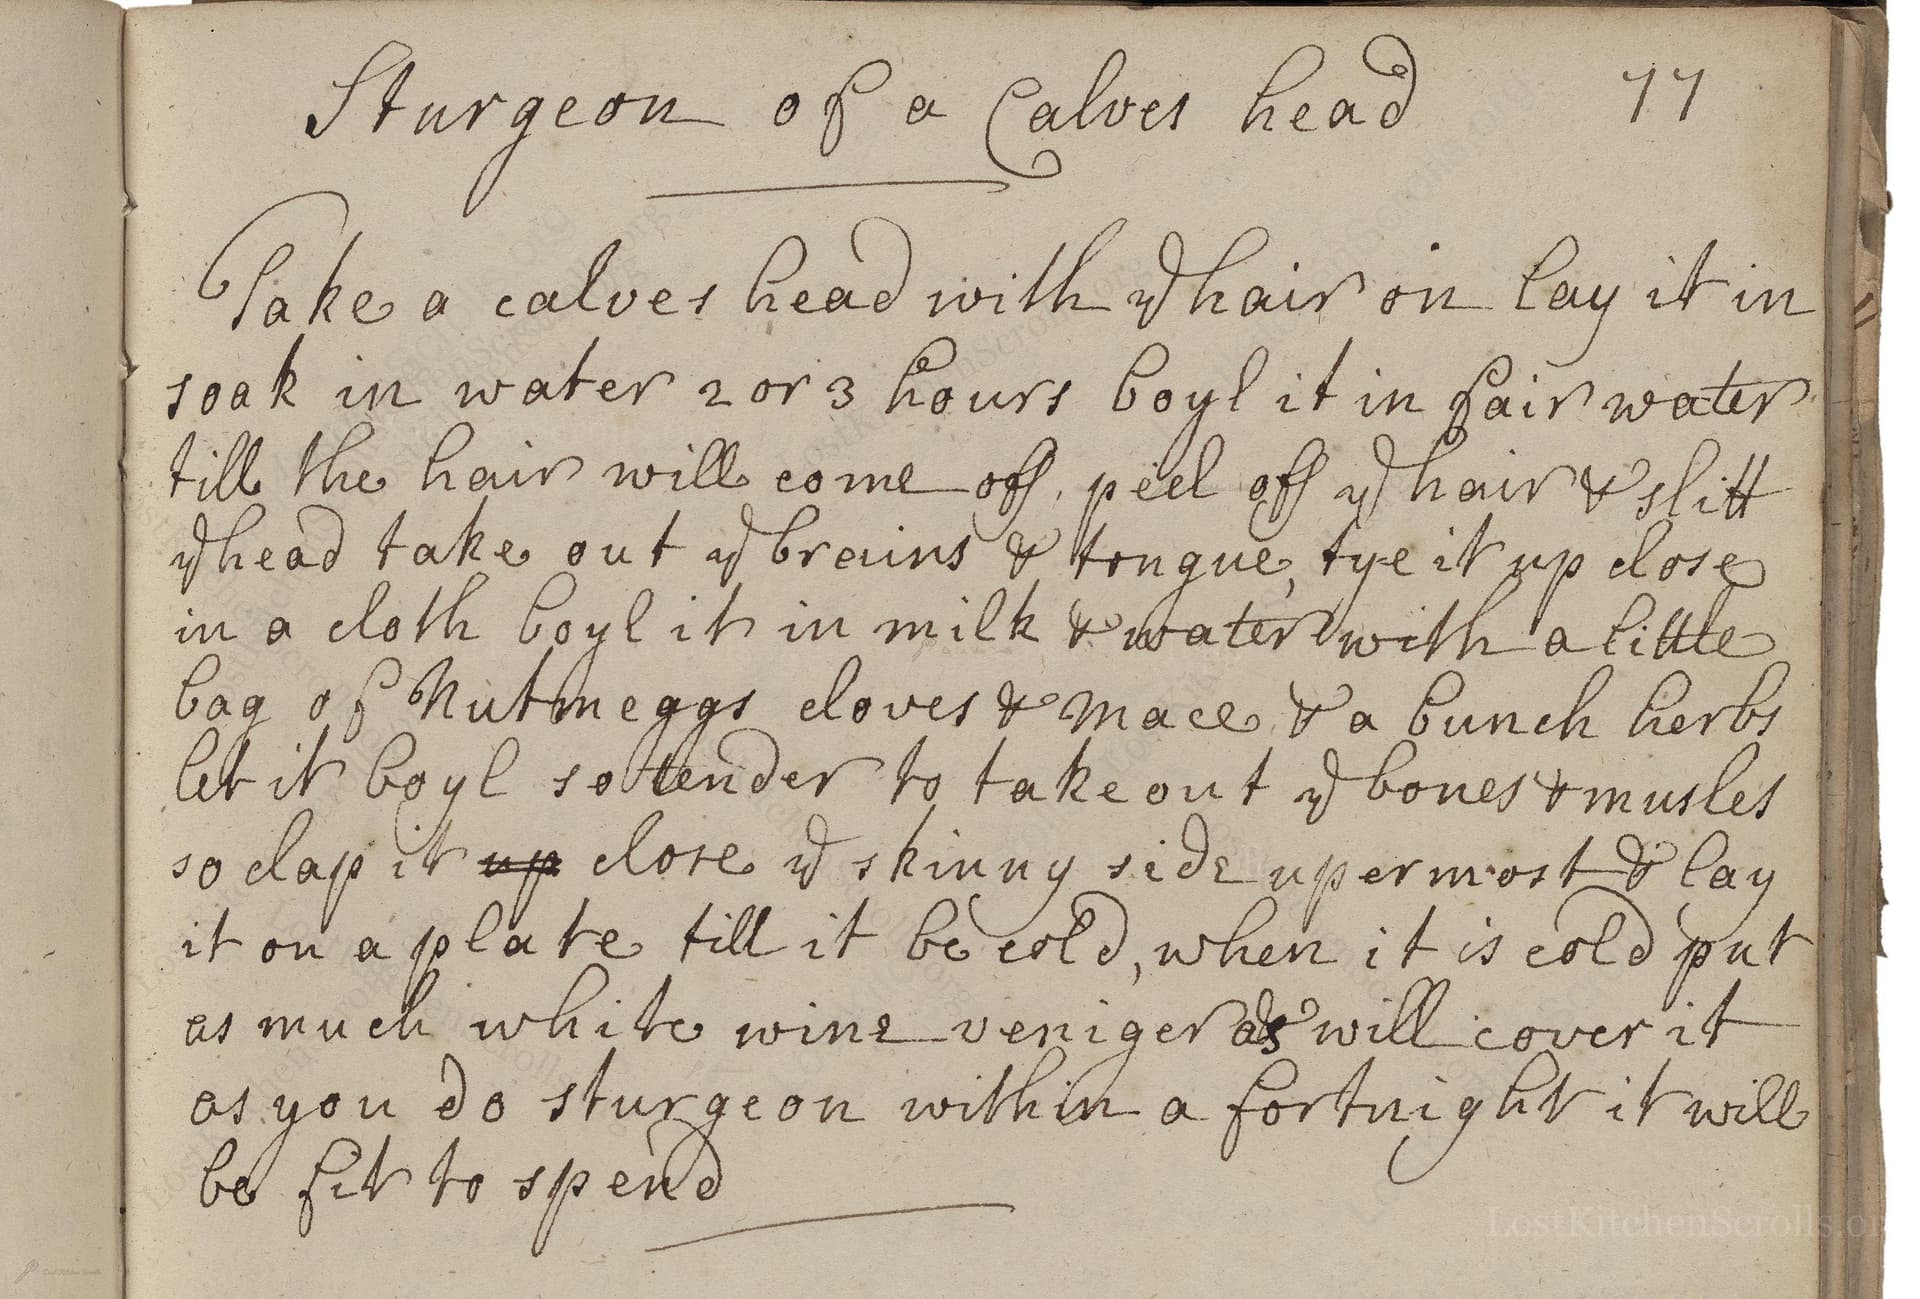 Sturgeon of a Calves head 77
Take a calves head with ye hair on lay it in
soak in water 2 or 3 hours boyl it in fair water
till the hair will come off, peel off ye hair & slitt
ye head take out ye brains & tongue, tye it up close
in a cloth boyl it in milk & water with a little
bag of Nutmeggs cloves & mace & a bunch herbs
let it boyl so tender to take out ye bones & musles
so clap it up close ye skinny side upermost & lay
it on a plate till it be cold, when it is cold put
as much white wine veniger as will cover it
as you do sturgeon within a fortnight it will
be fit to spend
LostKitchenScrolls.or